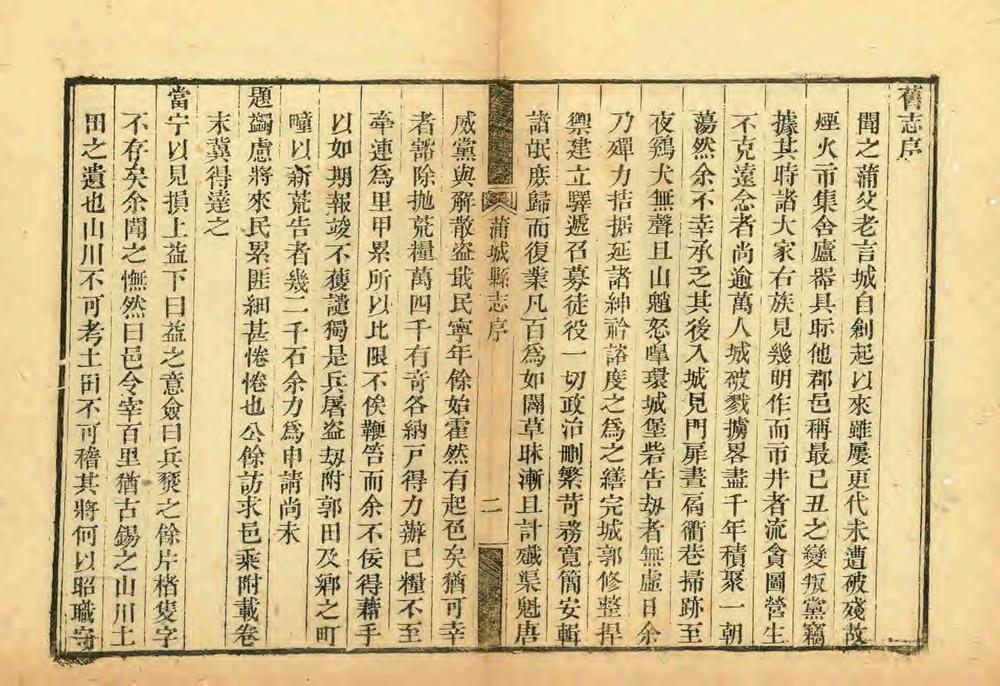 舊志序
聞之蒲父老言城自創起以來雖屢更代未遭破殘故
煙火市集舍廬器具眎他郡邑稱最已丑之變叛黨竊
據其時諸大家右族見幾明作而市井者流貪圖營生
不克遠念者尚逾萬人城破戮擄畧盡千年積聚一朝
蕩然余不幸承乏其後入城見門扉晝扄衢巷掃跡至
夜鷄犬無聲且山魈怒嘷環城堡砦告刼者無虛日余
乃殫力拮据延諸紳衿諮度之為之繕完城郭修整捍
禦建立驛遞召募徒役一切政治刪繁苛務寬簡安輯
諸氓庶歸而復業凡百為如闢草昧漸且計殲渠魁唐
蒲城縣志序
二
威黨與解散盜戢民寧年餘始霍然有起色矣猶可幸
者豁除拋荒糧萬四千有竒各納戸得力辦已糧不至
牽連為里甲累所以比限不俟鞭笞而余不佞得藉手
以如期報竣不獲譴獨是兵屠盜刼附郭田及鄉之町
疃以新荒告者幾二千石余力為申請尚未
題蠲慮將來民累匪細甚惓惓也公餘訪求邑乘附載卷
末冀得達之
當宁以見損上益下曰益之意僉曰兵燹之餘片楮隻字
不存矣余聞之憮然曰邑令宰百里猶古錫之山川土
田之遺也山川不可考土田不可稽其將何以昭職守